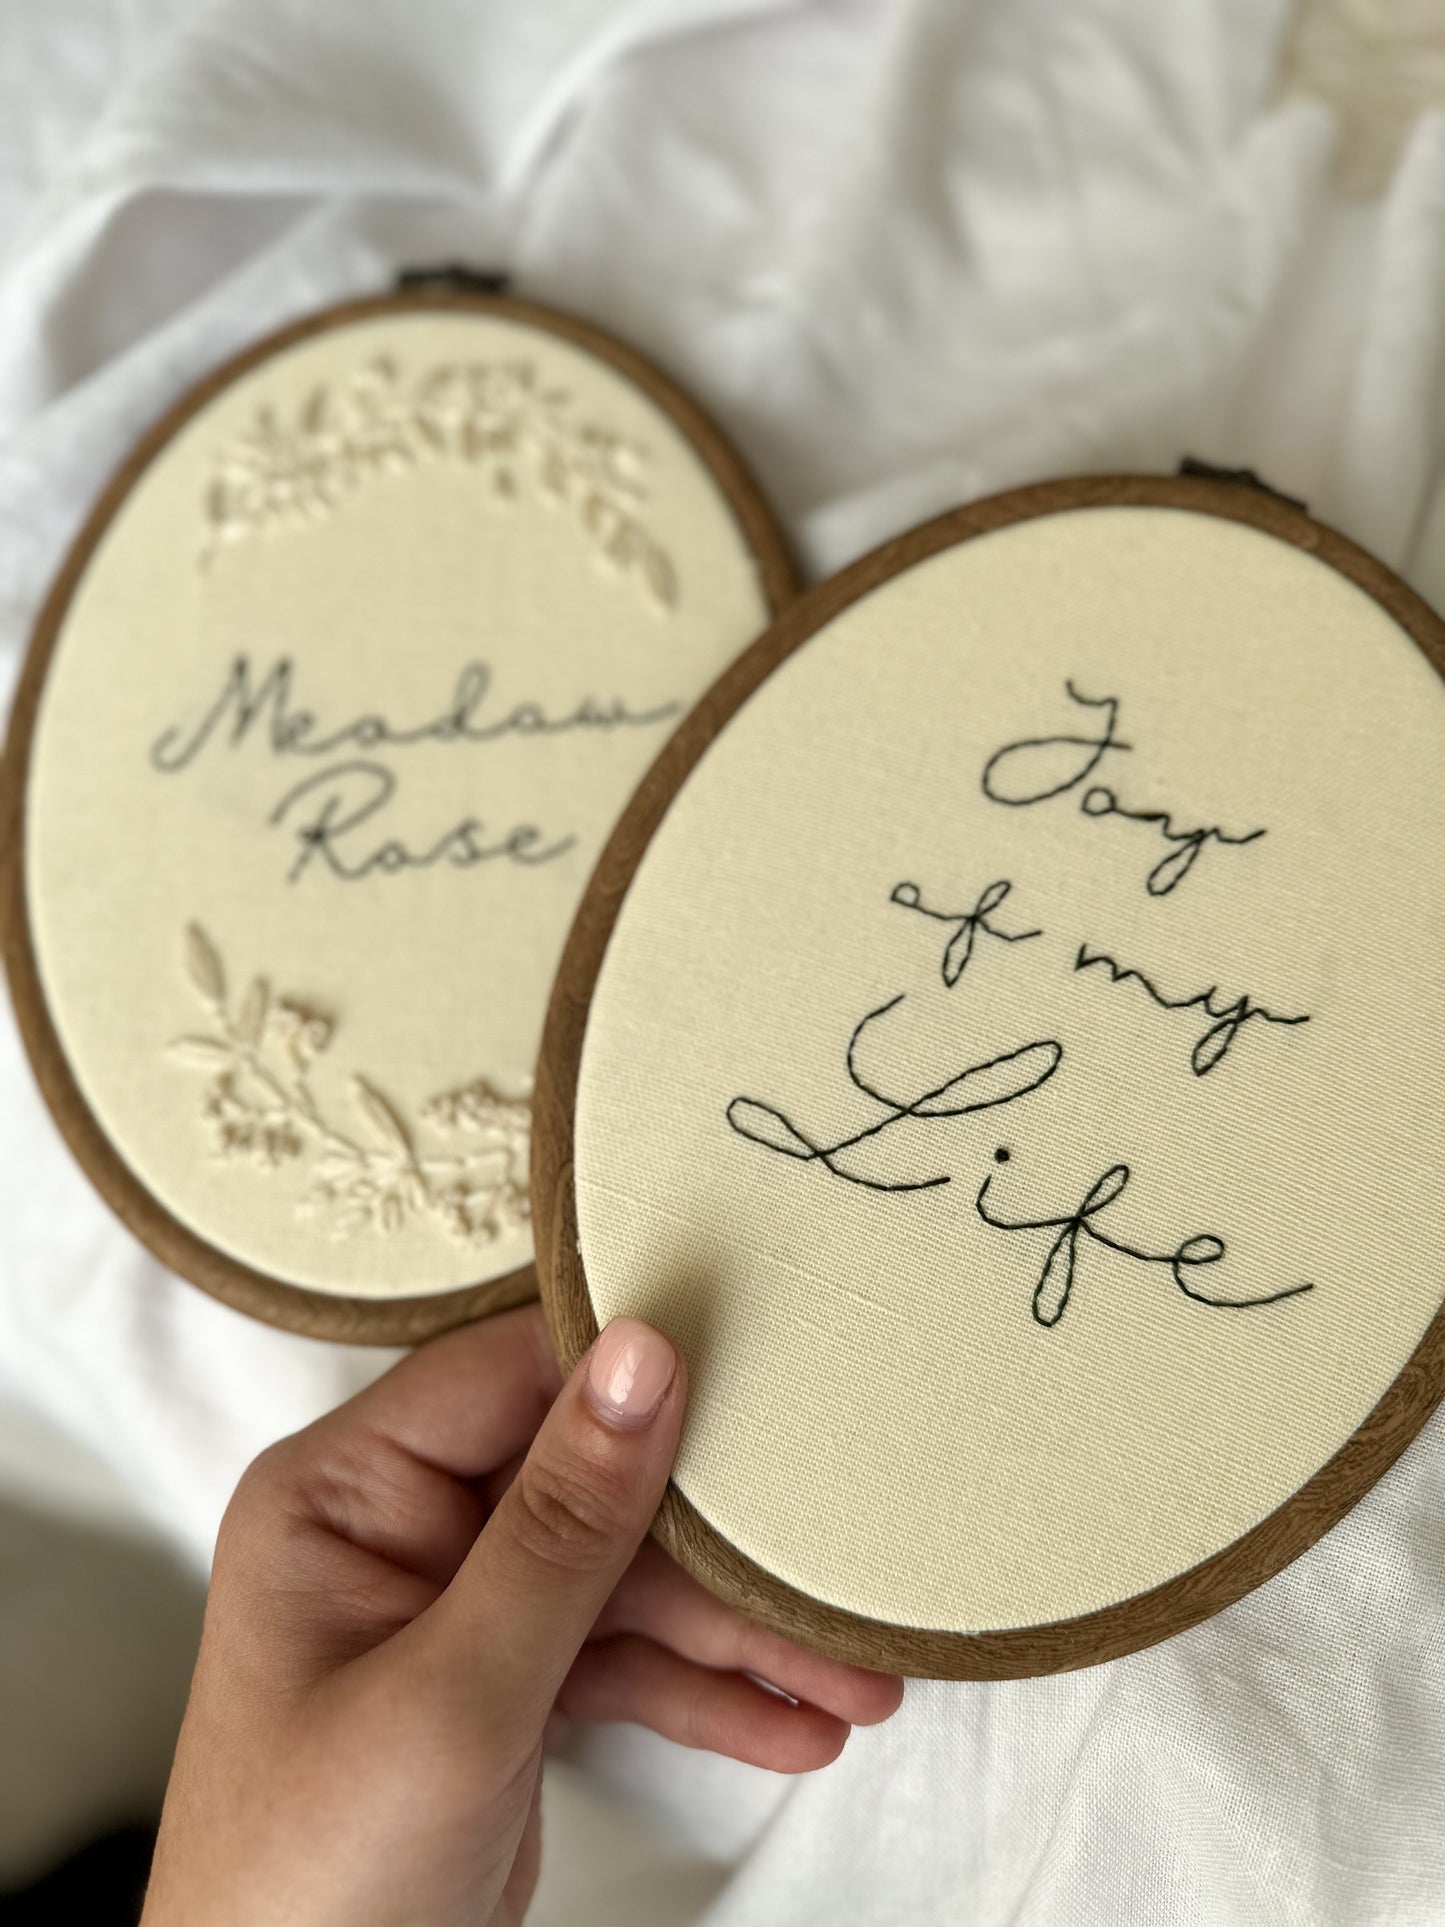 Meadow
Rose
Joy
of my
Life